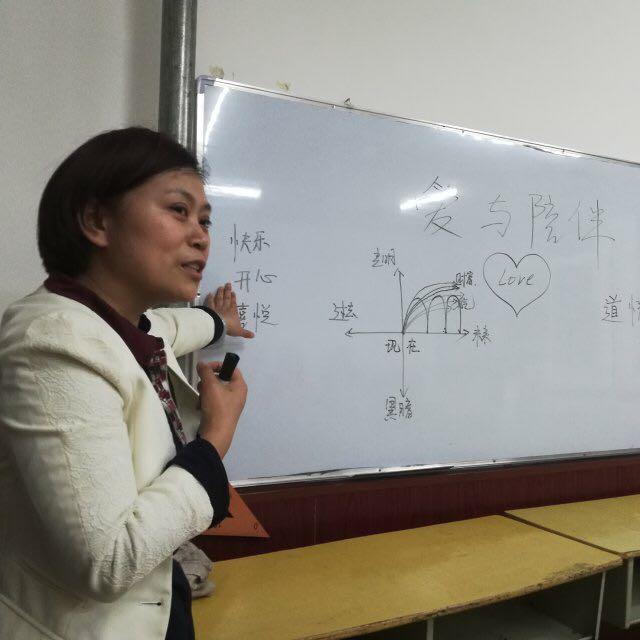 爱与陪伴
快乐
开心
喜悦
光明
Love
过去
现在
未来
道